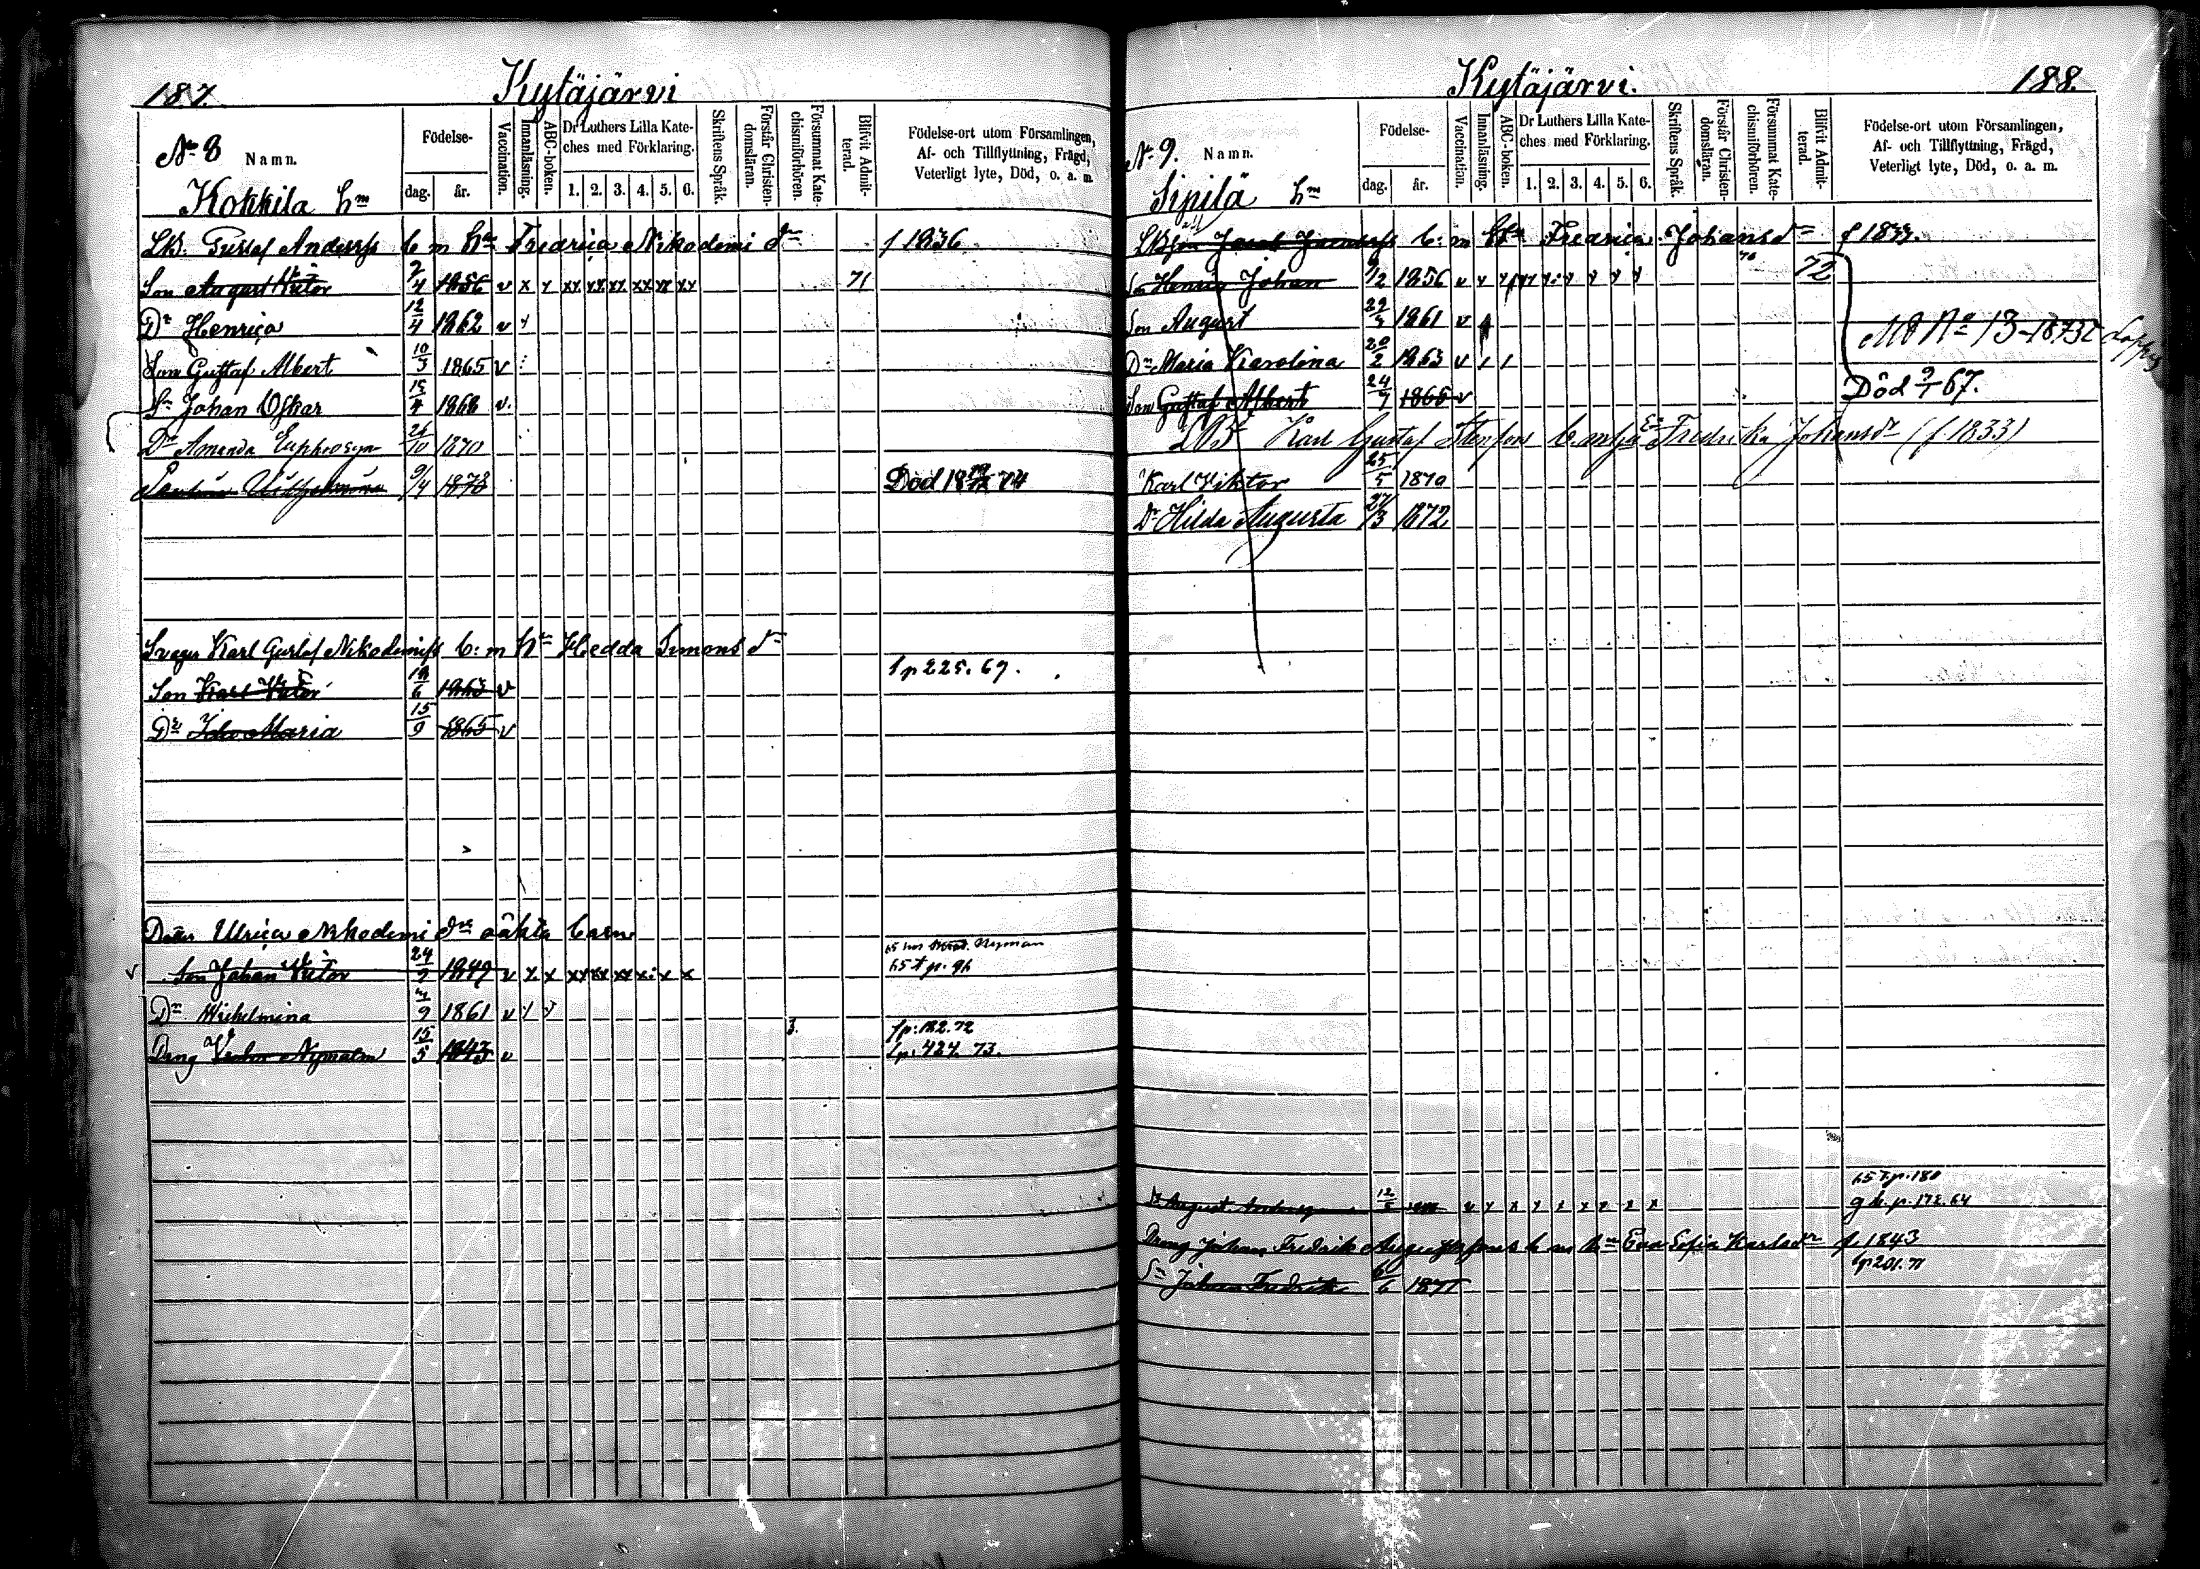 187.
Kytäjärvi
No 8
Namn.
Kokkila hm
Födelse-
dag. år.
Vaccination.
Innanläsning.
ABC-boken.
Dr Luthers Lilla Kate-
ches med Förklaring.
1. 2. 3. 4. 5. 6.
Skriftens Språk.
Förstår Christen-
domsläran.
Försummat Kate-
chismiförhören.
Blifvit Admit-
terad.
Födelse-ort utom Församlingen,
Af- och Tillflyttning, Frägd,
Veterligt lyte, Död, o. a. m.
LB. Gustaf Anderss b m hu Fredrica Nikodemi dr f 1836
Son August Victor 2/4 1856 v x x xx xx xx xx xx xx 71
Dr Henrica 12/4 1862 v
Son Gustaf Albert 10/3 1865 v
Sn Johan Oskar 15/4 1868 v.
Dr Amanda Euphrosyn 26/10 1870
Wilhelmina 9/4 1873 Död 74
Svåger Karl Gustaf Nikodemiss b: m hu Hedda Simons dr
f p 225. 67.
Son Karl Victor 6 1863 v
Dr Ida Maria 15/9 1865 v
Dotter Ulrica Nikodemi drs oäkta barn
65 hos Nyman
Son Johan Victor 24/9 1849 v x x xx xx xx x: x x 65 t p. 96
Dr Wilhelmina 9 1861 v
3. f p: 182. 72
Dreng Nymalm 15/5 1843 v f p: 424. 73.
Kytäjärvi.
188.
No 9.
Namn.
Sipilä hm
Födelse-
dag. år.
Vaccination.
Innanläsning.
ABC-boken.
Dr Luthers Lilla Kate-
ches med Förklaring.
1. 2. 3. 4. 5. 6.
Skriftens Språk.
Förstår Christen-
domsläran.
Försummat Kate-
chismiförhören.
Blifvit Admit-
terad.
Födelse-ort utom Församlingen,
Af- och Tillflyttning, Frägd,
Veterligt lyte, Död, o. a. m.
Jacob b: m hu Fredrica Johansdr f 1833.
Henric Johan 9/12 1856 v 70 72
Son August 1861 v
MB No 13 1873 Loppis
Dr Maria Karolina 20/2 1863 v
Son Gustaf Albert 24/7 1865 v Död 9/1 67.
LB Karl Gustaf Stenfors b m hu Fredrika Johansdr (f. 1833)
Karl Viktor 25/5 1870
Dr Hilda Augusta 27/3 1872
65 t p. 180
August 12/5 g h. p. 172. 64
Dreng Johan Fredrik b m hu Eva Sofia Karlsdr f 1843
f p 201. 71
Sn Johan Fredrik 6 1871